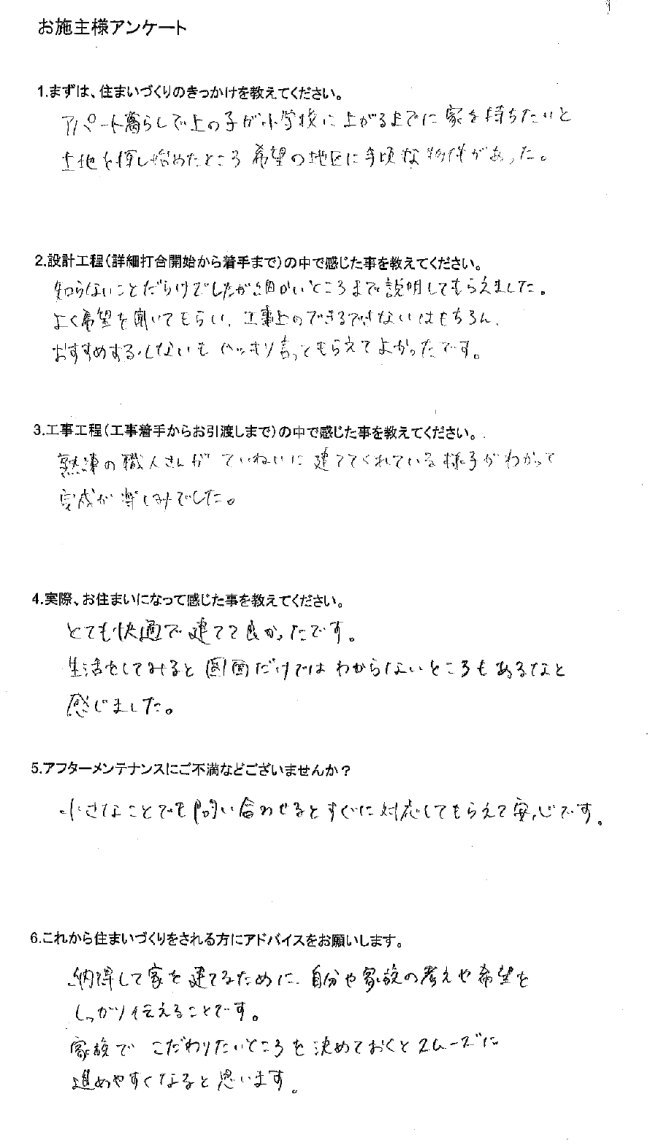 お施主様アンケート
1.まずは、住まいづくりのきっかけを教えてください。
アパート暮らしで上の子が小学校に上がるまでに家を持ちたいと
土地を探し始めたところ希望の地区に手頃な物件があった。
2.設計工程(詳細打合開始から着手まで)の中で感じた事を教えてください。
知らないことだらけでしたが細かいところまで説明してもらえました。
よく希望を聞いてもらい、工事上のできるできないはもちろん、
おすすめする・しないもハッキリ言ってもらえてよかったです。
3.工事工程(工事着手からお引渡しまで)の中で感じた事を教えてください。
熟練の職人さんがていねいに建ててくれている様子がわかって
完成が楽しみでした。
4.実際、お住まいになって感じた事を教えてください。
とても快適で建てて良かったです。
生活をしてみると図面だけではわからないところもあるなと
感じました。
5.アフターメンテナンスにご不満などございませんか?
小さなことでも問い合わせるとすぐに対応してもらえて安心です。
6.これから住まいづくりをされる方にアドバイスをお願いします。
納得して家を建てるために、自分や家族の考えや希望を
しっかり伝えることです。
家族でこだわりたいところを決めておくとスムーズに
進めやすくなると思います。